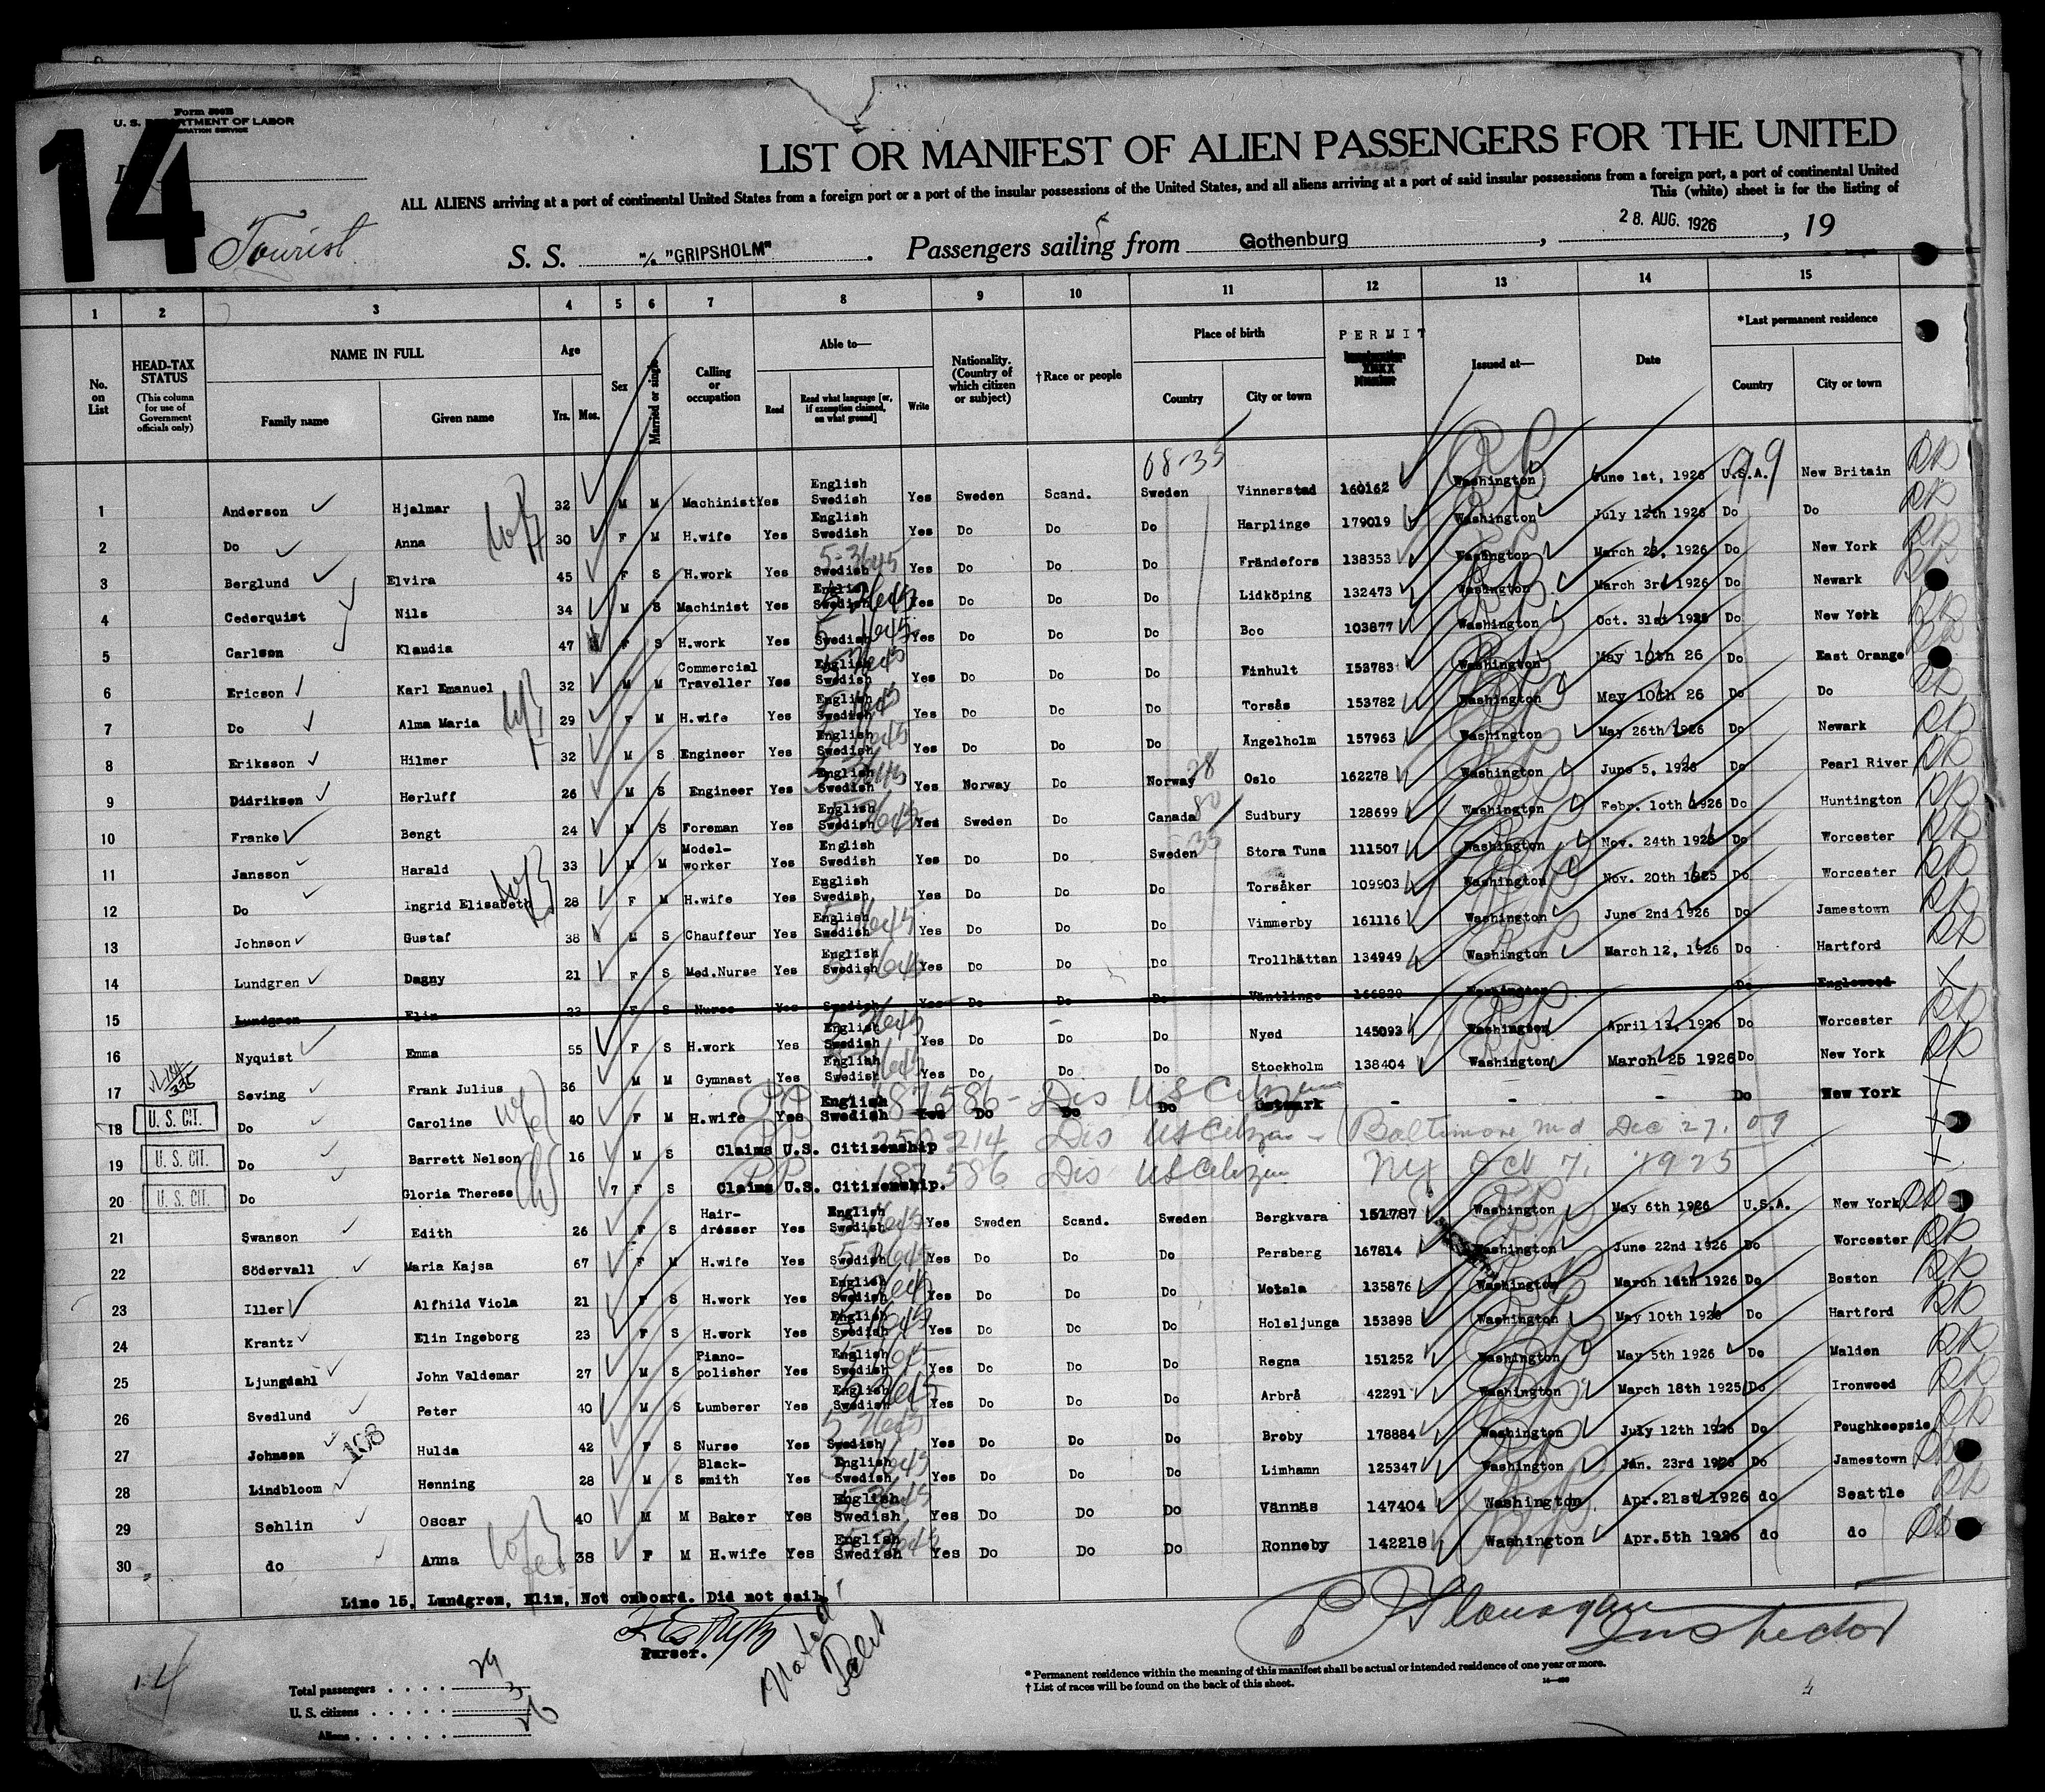 14
Form 500B
U. S. DEPARTMENT OF LABOR
IMMIGRATION SERVICE
LIST OR MANIFEST OF ALIEN PASSENGERS FOR THE UNITED
ALL ALIENS arriving at a port of continental United States from a foreign port or a port of the insular possessions of the United States, and all aliens arriving at a port of said insular possessions from a foreign port, a port of continental United
This (white) sheet is for the listing of
Tourist
S. S. "GRIPSHOLM". Passengers sailing from Gothenburg, 28. AUG. 1926, 19
1 2 3 4 5 6 7 8 9 10 11 12 13 14 15
No. on List
HEAD-TAX STATUS (This column for use of Government officials only)
NAME IN FULL Family name Given name
Age Yrs. Mos.
Sex
Married or single
Calling or occupation
Able to— Read Read what language [or, if exemption claimed, on what ground] Write
Nationality. (Country of which citizen or subject)
†Race or people
Place of birth Country City or town
PERMIT
Issued at—
Date
*Last permanent residence Country City or town
08-35
99
1 Anderson Hjalmar 32 M M Machinist Yes English Swedish Yes Sweden Scand. Sweden Vinnerstad 160162 Washington June 1st, 1926 U.S.A. New Britain
2 Do Anna 30 F M H.wife Yes English Swedish Yes Do Do Do Harplinge 179019 Washington July 12th 1926 Do Do
3 Berglund Elvira 45 F S H.work Yes Swedish Yes Do Do Do Frändefors 138353 Washington March 23, 1926 Do New York
4 Cederquist Nils 34 M S Machinist Yes English Swedish Yes Do Do Do Lidköping 132473 Washington March 3rd 1926 Do Newark
5 Carlson Klaudia 47 F S H.work Yes Swedish Yes Do Do Do Boo 103877 Washington Oct. 31st 1925 Do New York
6 Ericson Karl Emanuel 32 M M Commercial Traveller Yes English Swedish Yes Do Do Do Finhult 153783 Washington May 10th 26 Do East Orange
7 Do Alma Maria 29 F M H.wife Yes English Swedish Yes Do Do Do Torsås 153782 Washington May 10th 26 Do Do
8 Eriksson Hilmer 32 M S Engineer Yes English Swedish Yes Do Do Do Ängelholm 157963 Washington May 26th 1926 Do Newark
9 Didriksen Herluff 26 M S Engineer Yes English Swedish Yes Norway Do Norway 28 Oslo 162278 Washington June 5, 1926 Do Pearl River
10 Franke Bengt 24 M S Foreman Yes English Swedish Yes Sweden Do Canada 80 Sudbury 128699 Washington Febr. 10th 1926 Do Huntington
11 Jansson Harald 33 M M Model-worker Yes English Swedish Yes Do Do Sweden 35 Stora Tuna 111507 Washington Nov. 24th 1926 Do Worcester
12 Do Ingrid Elisabeth 28 F M H.wife Yes English Swedish Yes Do Do Do Torsåker 109903 Washington Nov. 20th 1925 Do Worcester
13 Johnson Gustaf 38 M S Chauffeur Yes English Swedish Yes Do Do Do Vimmerby 161116 Washington June 2nd 1926 Do Jamestown
14 Lundgren Dagny 21 F S Med.Nurse Yes English Swedish Yes Do Do Do Trollhättan 134949 Washington March 12, 1926 Do Hartford
15 Lundgren Elin 23 F S Nurse Yes Swedish Yes Do Do Do Washington Do Englewood
16 Nyquist Emma 55 F S H.work Yes English Swedish Yes Do Do Do Nyed 145093 Washington April 13, 1926 Do Worcester
17 Seving Frank Julius 36 M M Gymnast Yes English Swedish Yes Do Do Do Stockholm 138404 Washington March 25 1926 Do New York
18 U. S. CIT. Do Caroline 40 F M H.wife Yes English Swedish Yes Do Do Do - - - Do New York
PP 187586 - Dis US Citizen
19 U. S. CIT. Do Barrett Nelson 16 M S Claims U.S. Citizenship
PP 250214 Dis US Citizen - Baltimore Md Dec 27. 09
20 U. S. CIT. Do Gloria Therese 7 F S Claims U.S. Citizenship.
PP 187586 Dis US Citizen NY Oct 7, 1925
21 Swanson Edith 26 F S Hair-drésser Yes English Swedish Yes Sweden Scand. Sweden Bergkvara 151787 Washington May 6th 1926 U.S.A. New York
22 Södervall Maria Kajsa 67 F M H.wife Yes Swedish Yes Do Do Do Persberg 167814 Washington June 22nd 1926 Do Worcester
23 Iller Alfhild Viola 21 F S H.work Yes English Swedish Yes Do Do Do Motala 135876 Washington March 16th 1926 Do Boston
24 Krantz Elin Ingeborg 23 F S H.work Yes English Swedish Yes Do Do Do Holsljunga 153898 Washington May 10th 1926 Do Hartford
25 Ljungdahl John Valdemar 27 M S Piano-polisher Yes English Swedish Yes Do Do Do Regna 151252 Washington May 5th 1926 Do Malden
26 Svedlund Peter 40 M S Lumberer Yes English Swedish Yes Do Do Do Arbrå 42291 Washington March 18th 1925 Do Ironwood
27 Johnson 108 Hulda 42 F S Nurse Yes Swedish Yes Do Do Do Broby 178884 Washington July 12th 1926 Do Poughkeepsie
28 Lindbloom Henning 28 M S Black-smith Yes English Swedish Yes Do Do Do Limhamn 125347 Washington Jan. 23rd 1926 Do Jamestown
29 Sehlin Oscar 40 M M Baker Yes English Swedish Yes Do Do Do Vännäs 147404 Washington Apr.21st 1926 do Seattle
30 do Anna 38 F M H.wife Yes English Swedish Yes Do Do Do Ronneby 142218 Washington Apr.5th 1926 do do
Line 15, Lundgren, Elin, Not onboard. Did not sail.
Purser.
Inspector
14
Total passengers . . . . 29
U. S. citizens . . . . . 3
Aliens . . . . . . 26
* Permanent residence within the meaning of this manifest shall be actual or intended residence of one year or more.
† List of races will be found on the back of this sheet.